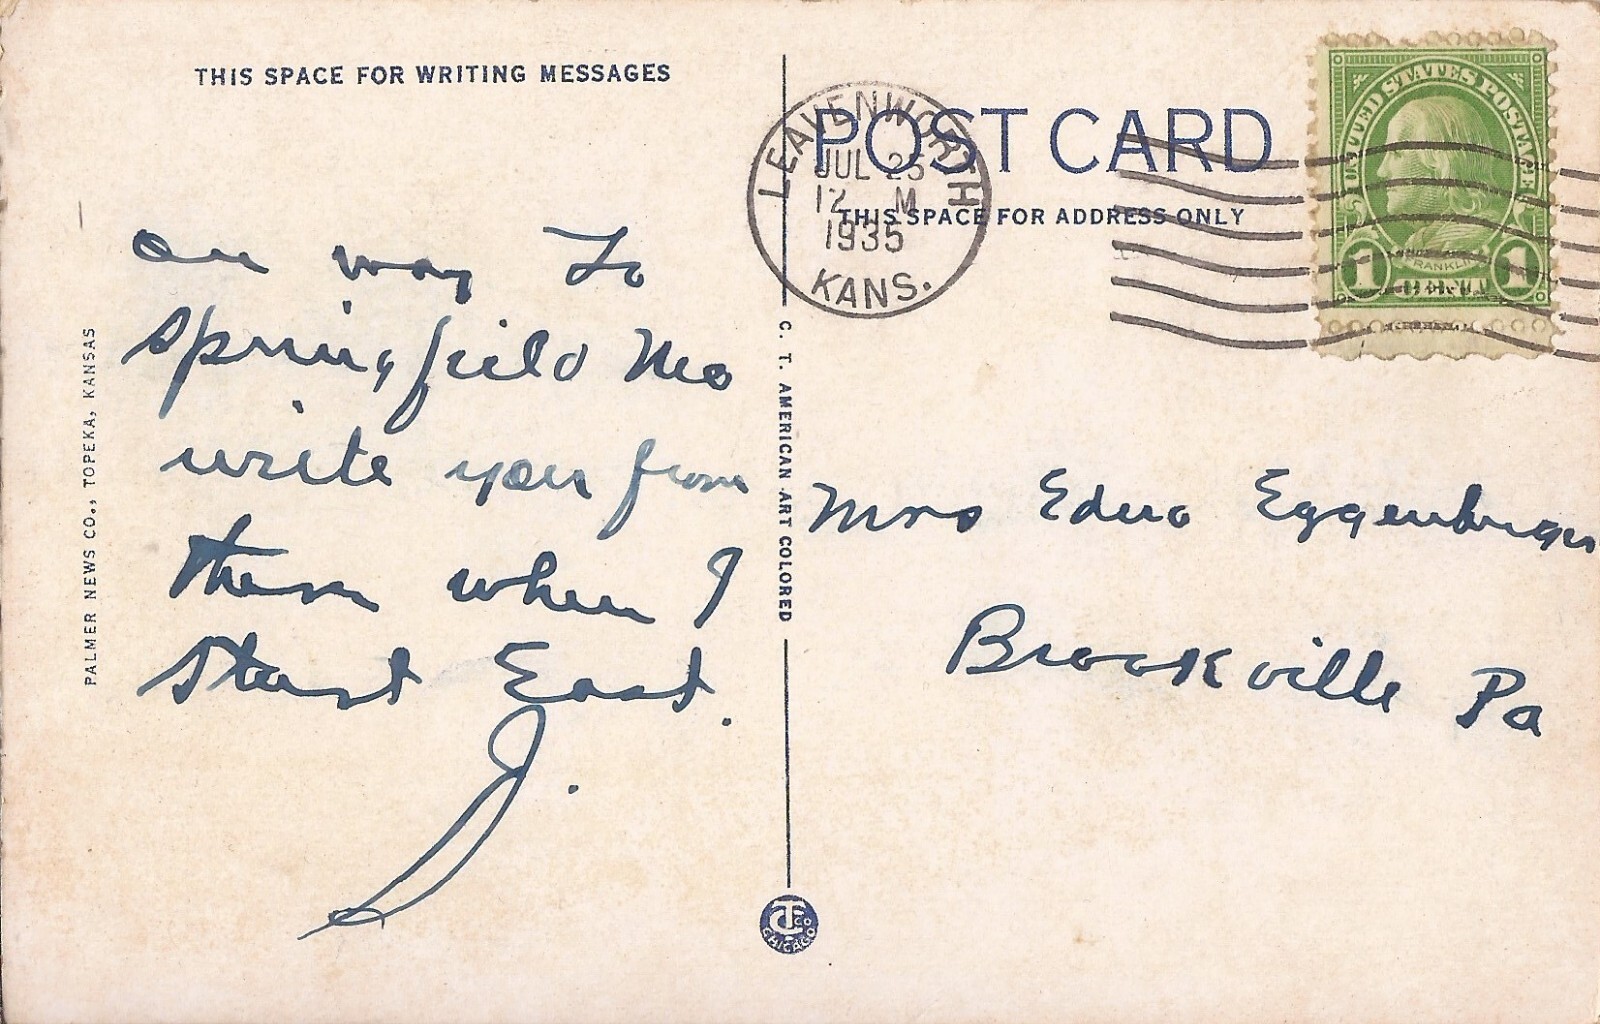 THIS SPACE FOR WRITING MESSAGES
on way To
Springfield Mo
write you from
there when I
Start East.
J.
PALMER NEWS CO., TOPEKA, KANSAS
C. T. AMERICAN ART COLORED
POST CARD
THIS SPACE FOR ADDRESS ONLY
LEAVENWORTH
JUL 25
12 M
1935
KANS.
UNITED STATES POSTAGE
FRANKLIN
1 1
Mrs Edna Eggenberger
Brookville Pa
CT CO
CHICAGO